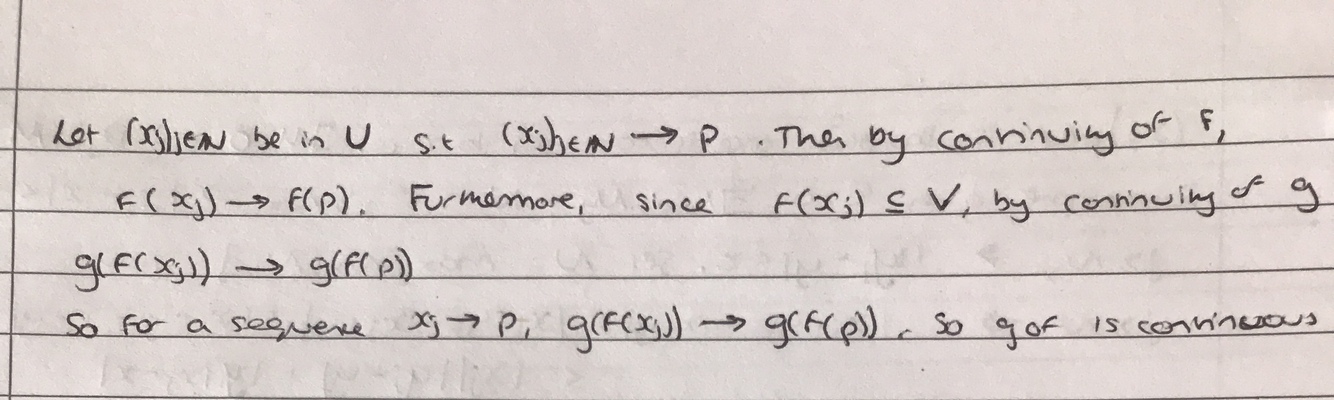 Let (xj)j∈ℕ be in U s.t (xj)j∈ℕ → p. Then by continuity of f,
f(xj) → f(p). Furthermore, since f(xj) ⊆ V, by continuity of g
g(f(xj)) → g(f(p))
So for a sequence xj → p, g(f(xj)) → g(f(p)). So g∘f is continuous